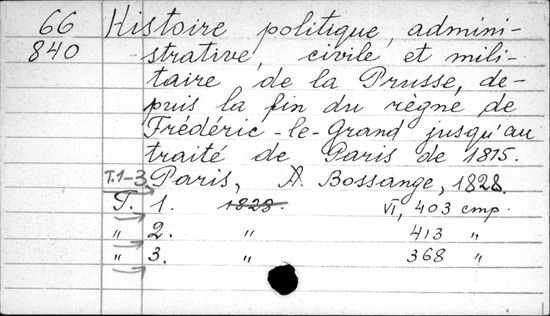 66 Histoire politique, admini-
840 strative, civile et mili-
taire de la Prusse, de-
puis la fin du règne de
Frédéric-le-Grand jusqu'au
traité de Paris de 1815.
T.1-3 Paris, A. Bossange, 1828.
T. 1. 1828. VI, 403 стр.
" 2. " 413 "
" 3. " 368 "